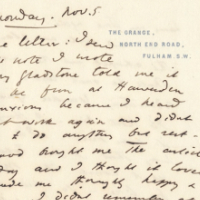 onday. Nov. 5
THE GRANGE,
NORTH END ROAD,
FULHAM S.W.
e letter: I send
note I wrote
Gladstone told me it
fun at Hawarden
anxious because I heard
work again and did
do anything but rest
thought me the article
day and I thought it love
made me thoroughly happy &
I didn't remember